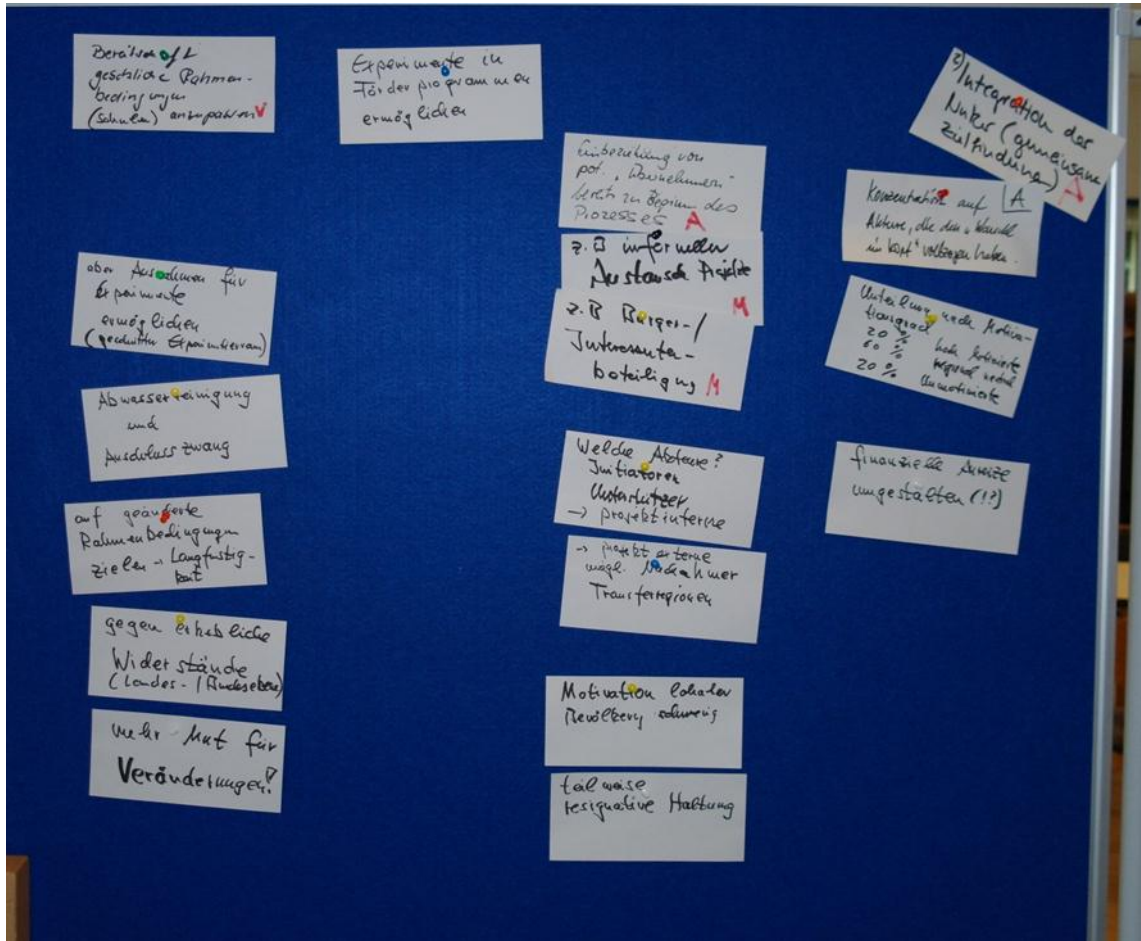 Bereitschaft
gesetzliche Rahmen-
bedingungen
(Schulen) anzupassen V
aber Ausnahmen für
Experimente
ermöglichen
(geschützter Experimentierraum)
Abwasserreinigung
und
Anschlusszwang
auf geänderte
Rahmenbedingungen
zielen → Langfristig-
keit
gegen erhebliche
Widerstände
(Landes- / Bundesebene)
mehr Mut für
Veränderungen!
Experimente in
Förderprogrammen
ermöglichen
Einbeziehung von
pot. „Abnehmern"
bereits zu Beginn des
Prozesses A
z. B informeller
Austausch Projekte
M
z. B Bürger-/
Interessenten-
beteiligung M
Welche Akteure?
Initiatoren
Unterstützer
→ projektinterne
→ projektexterne
mögl. Nachahmer
Transferregionen
Motivation lokaler
Bevölkerung schwierig
teilweise
resignative Haltung
2) Integration der
Nutzer (gemeinsame
Zielfindung) A
Konzentration auf A
Akteure, die den „Wandel
im Kopf" vollzogen haben.
Unterteilung nach Motiva-
tionsgrad
20 % hoch Motivierte
60 %
20 % Unmotivierte
finanzielle Anreize
umgestalten (!?)